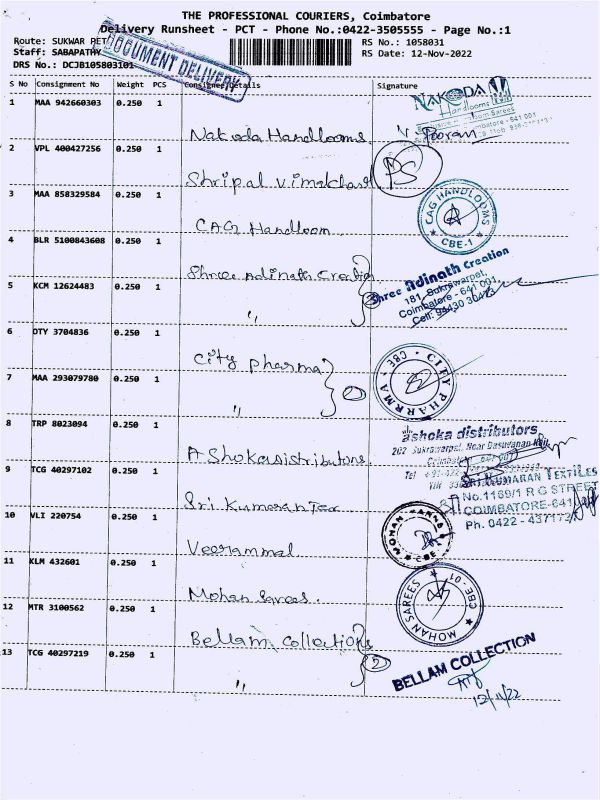 THE PROFESSIONAL COURIERS, Coimbatore
Delivery Runsheet - PCT - Phone No.:0422-3505555 - Page No.:1
Route: SUKWAR PET
RS No.: 1058031
Staff: SABAPATHY
RS Date: 12-Nov-2022
DRS No.: DCJB105803101
DOCUMENT DELIVERY
S No Consignment No Weight PCS Consignee Details Signature
1 MAA 942660303 0.250 1
Nakoda Handlooms
NAKODA
Handlooms
V. Pooran
2 VPL 400427256 0.250 1
Shripal Vimalchand
PS
3 MAA 858329584 0.250 1
CAG Handloom
CAG HANDLOOMS
CBE-1
4 BLR 5100843608 0.250 1
Shree Adinath Creation
Shree Adinath Creation
181, Sukrawarpet,
Coimbatore - 641 001
Cell: 94430
5 KCM 12624483 0.250 1
"
2
6 DTY 3704836 0.250 1
City pharma
CITY PHARMA
CBE
7 MAA 293079780 0.250 1
"
8 TRP 8023094 0.250 1
Ashoka distributors
ashoka distributors
202 Sukrawarpet, Near
9 TCG 40297102 0.250 1
Sri. Kumaran Tex
SRI KUMARAN TEXTILES
No.1169/1 R G STREET
COIMBATORE-641
Ph. 0422 - 437172
10 VLI 220754 0.250 1
Veerammal
MOHAN
CBE
11 KLM 432601 0.250 1
Mohan Sarees.
MOHAN SAREES
CBE-01
12 MTR 3100562 0.250 1
Bellam Collections
BELLAM COLLECTION
13 TCG 40297219 0.250 1
"
2
12/11/22